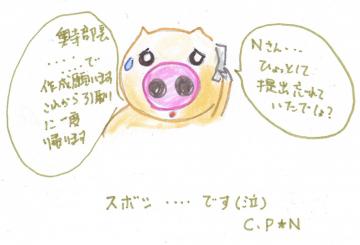 ・・・・・で
作成願います
これから引取り
に一度
帰ります
Nさん・・・
ひょっとして
提出忘れて
いたでしょ?
スボッ ・・・・ です(泣)
C.P★N